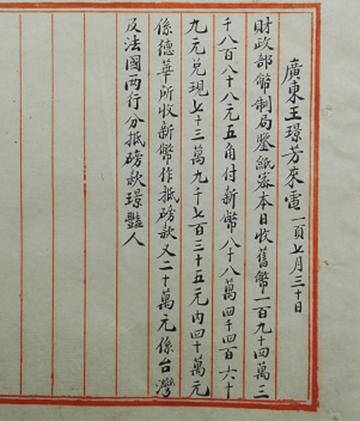 廣東王璟芳來電一頁七月三十日
財政部幣制局鑒紙密本日收舊幣一百九十四萬三
千八百八十八元五角付新幣八十八萬四千四百六十
九元兑現七十三萬九千七百三十五元內四十萬元
係德華所收新幣作抵磅款又二十萬元係台灣
及法國兩行分抵磅款璟豔人